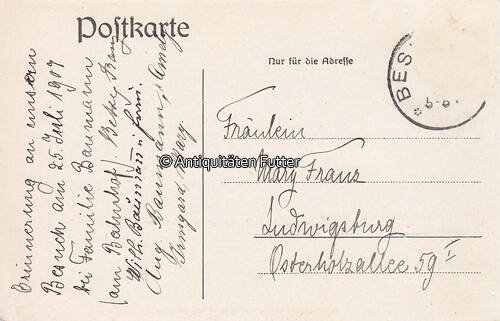 Postkarte
Nur für die Adresse
BES
5.8.
Erinnerung an unsern
Besuch am 25. Juli 1907
bei Familie Baumann
(am Bahnhof) Franz
Wilh. Baumann u. fam.
Aug. Baumann, Amely
Irmgard, Mary
Fräulein
Mary Franz
Ludwigsburg
Osterholzallee 59 I
© Antiquitäten Futter